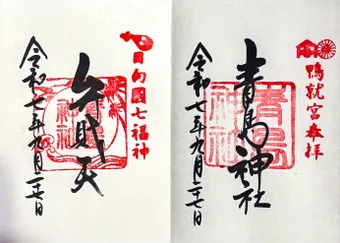 日向國七福神
弁財天
青島
神社
令和七年九月二十七日
鴨就宮奉拝
青島神社
青島
神社
令和七年九月二十七日